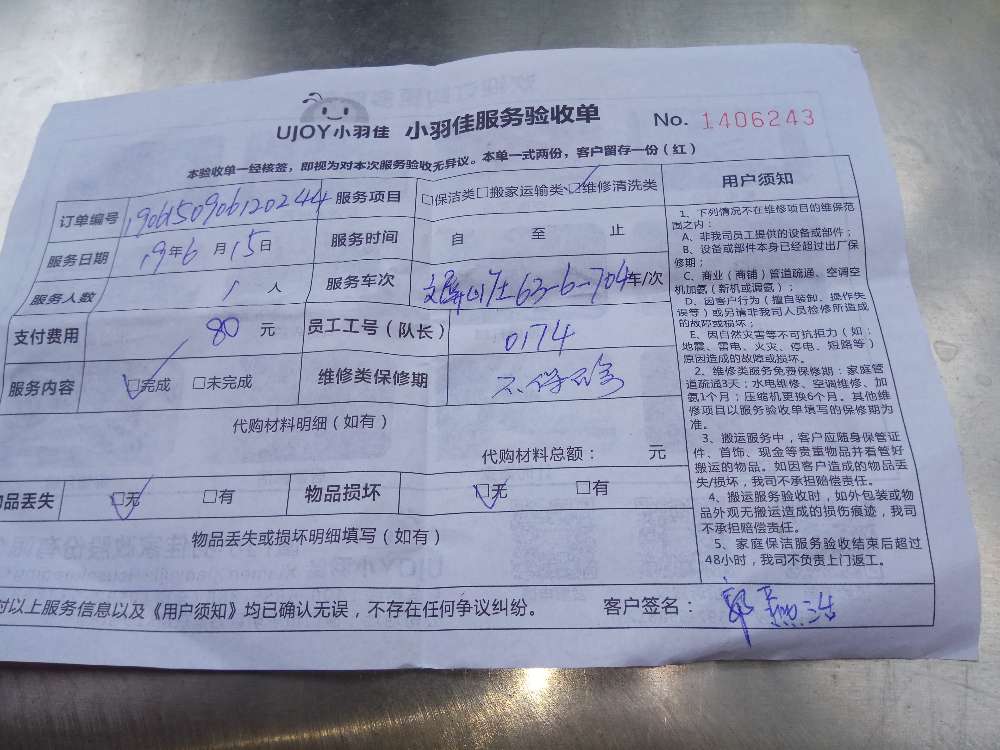 UJOY小羽佳 小羽佳服务验收单 No. 1406243
本验收单一经核签，即视为对本次服务验收无异议。本单一式两份，客户留存一份（红）
订单编号 1906150906120244 服务项目 □保洁类□搬家运输类□维修清洗类
服务日期 19年6月15日 服务时间 自 至 止
服务人数 1人 服务车次 63-6-704车/次
支付费用 80元 员工工号（队长） 0174
服务内容 □完成 □未完成 维修类保修期
代购材料明细（如有）
代购材料总额： 元
物品丢失 □无 □有 物品损坏 □无 □有
物品丢失或损坏明细填写（如有）
对以上服务信息以及《用户须知》均已确认无误，不存在任何争议纠纷。 客户签名：
用户须知
1、下列情况不在维修项目的维保范
围之内：
A、非我司员工提供的设备或部件；
B、设备或部件本身已经超过出厂保
修期；
C、商业（商铺）管道疏通、空调空
机加氨（新机或调氨）；
D、因客户行为（擅自装卸、操作失
误等）或另请非我司人员检修所造成
的故障或损坏；
E、因自然灾害等不可抗拒力（如：
地震、雷电、火灾、停电、短路等）
原因造成的故障或损坏。
2、维修类服务免费保修期：家庭管
道疏通3天；水电维修、空调维修、加
氨1个月；压缩机更换6个月。其他维
修项目以服务验收单填写的保修期为
准。
3、搬运服务中，客户应随身保管证
件、首饰、现金等贵重物品并看管好
搬运的物品。如因客户造成的物品丢
失/损坏，我司不承担赔偿责任。
4、搬运服务验收时，如外包装或物
品外观无搬运造成的损伤痕迹，我司
不承担赔偿责任。
5、家庭保洁服务验收结束后超过
48小时，我司不负责上门返工。